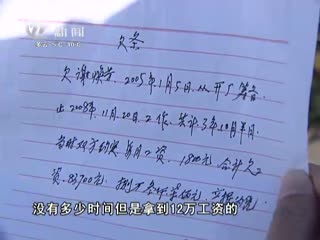 新闻
欠条
欠谢焕兰，2005年1月5日，从开厂筹备
止2008年，11月20日，工作，共计3年10月半月
当时双方约定，每月工资，1800元，合计欠工
资，83700元，
没有多少时间但是拿到12万工资的